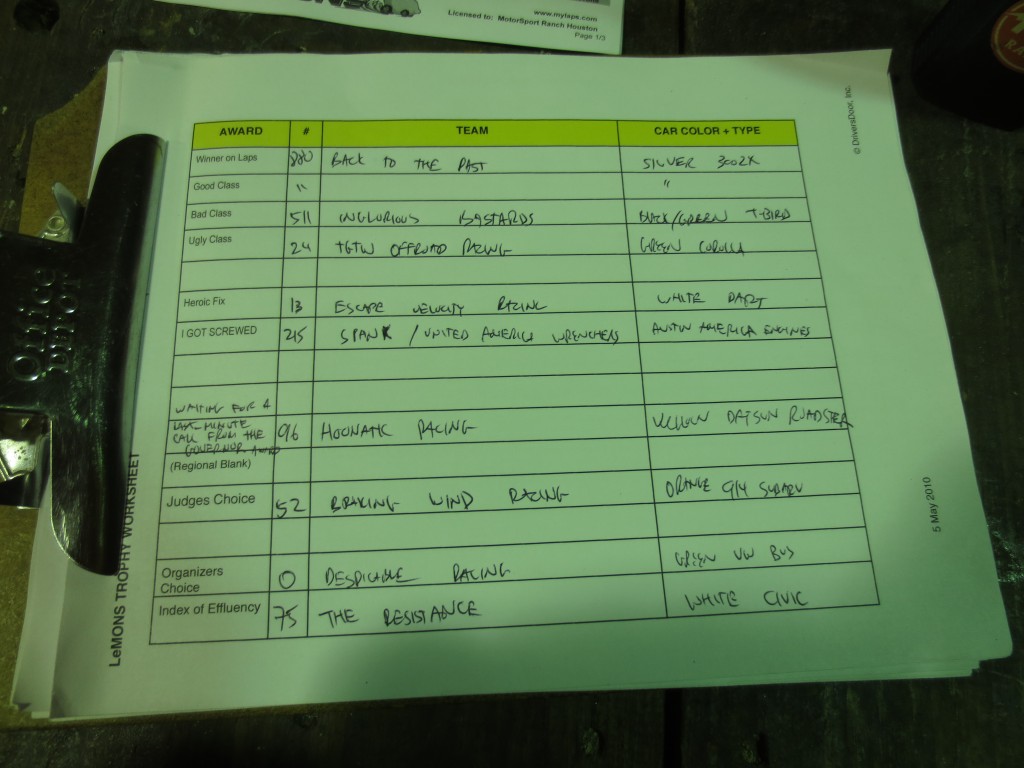 www.mylaps.com
Licensed to: MotorSport Ranch Houston
Page 1/3
© DriversDoor, Inc.
AWARD # TEAM CAR COLOR + TYPE
Winner on Laps 880 BACK TO THE PAST SILVER 300ZX
Good Class " "
Bad Class 511 INGLORIOUS BASTARDS BLACK/GREEN T-BIRD
Ugly Class 24 TGTW OFFROAD RACING GREEN COROLLA
Heroic Fix 13 ESCAPE VELOCITY RACING WHITE DART
I GOT SCREWED 215 SPANK / UNITED AMERICA WRENCHERS AMERICA ENGINES
WAITING FOR A
LAST MINUTE
CALL FROM THE
GOVERNOR AWARD 96 HOONATIC RACING YELLOW DATSUN ROADSTER
(Regional Blank)
Judges Choice 52 BRAKING WIND RACING ORANGE 914 SUBARU
Organizers
Choice 0 DESPICABLE RACING GREEN VW BUS
Index of Effluency 75 THE RESISTANCE WHITE CIVIC
LeMONS TROPHY WORKSHEET
5 May 2010
Office
DEPOT